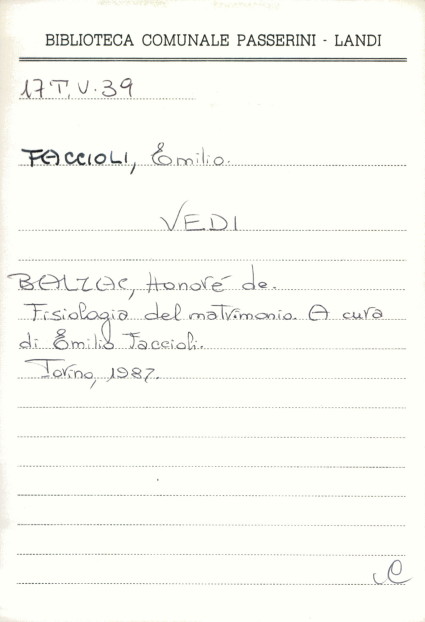 BIBLIOTECA COMUNALE PASSERINI - LANDI
17 T. V. 39
FACCIOLI, Emilio.
VEDI
BALZAC, Honoré de.
Fisiologia del matrimonio. A cura
di Emilio Faccioli.
Torino, 1987.